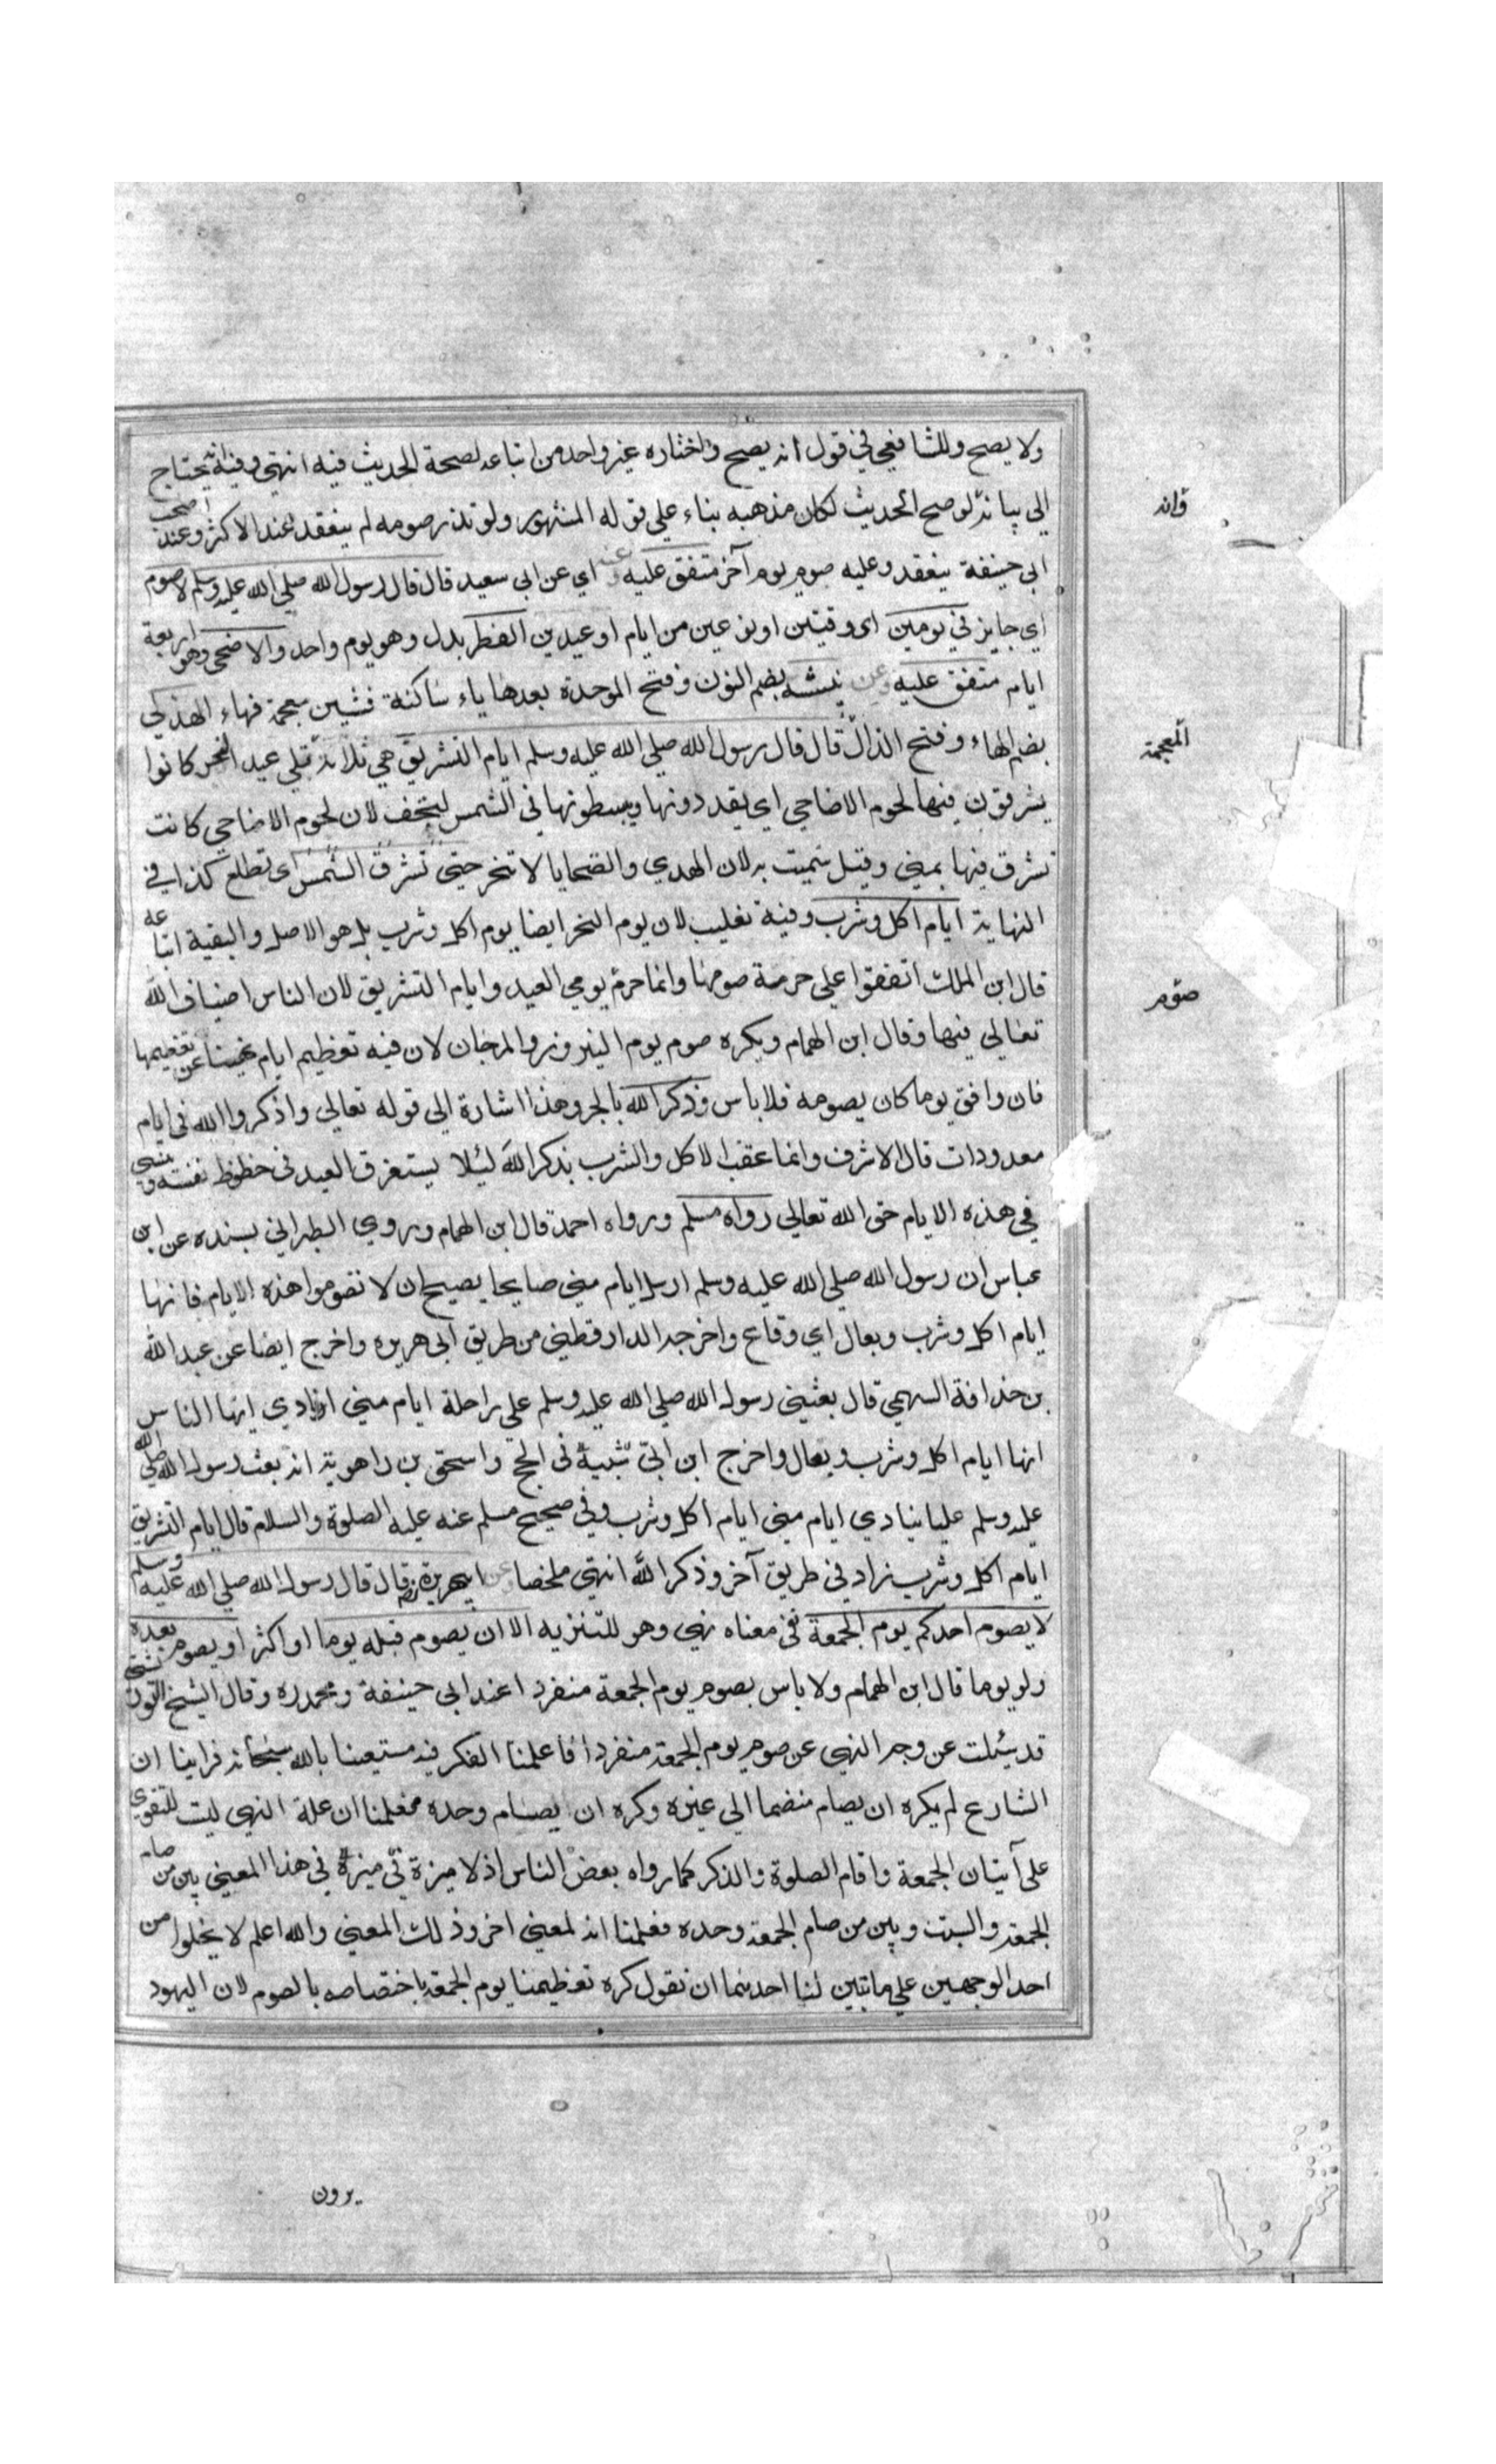 ولا يصح وللشافعي في قول انه يصح واختاره غير واحد من اتباعه لصحة الحديث فيه انتهى وفيه يحتاج
الي بيانه لو صح الحديث لكان مذهبه بناء علي قوله المشهور ولو نذر صومه لم ينعقد عند الاكثر وعند اصحاب
وانه
ابي حنيفة ينعقد وعليه صوم يوم آخر متفق عليه وعنه اي عن ابي سعيد قال قال رسول الله صلي الله عليه وسلم لا صوم
اي جايز في يومين اي وقتين او نوعين من ايام او عيدين الفطر بدل وهو يوم واحد والاضحى وهو اربعة
ايام متفق عليه وعن نبيشه بضم النون وفتح الموحدة بعدها ياء ساكنة فشين معجمة فهاء الهذلي
بضم الهاء وفتح الذال قال قال رسول الله صلي الله عليه وسلم ايام التشريق هي ثلاثة تلي عيد النحر كانوا
المعجمة
يشرقون فيها لحوم الاضاحي اي يقددونها ويبسطونها في الشمس ليجف لان لحوم الاضاحي كانت
تشرق فيها بمني وقيل سميت به لان الهدي والضحايا لا تنحر حتي تشرق الشمس اي تطلع كذا في
النهاية ايام اكل وشرب وفيه تغليب لان يوم النحر ايضا يوم اكل وشرب بل هو الاصل والبقية اتباعه
قال ابن الملك اتفقوا علي حرمة صومها وانما حرم يومي العيد وايام التشريق لان الناس اضياف الله
صوم
تعالي فيها وقال ابن الهمام ويكره صوم يوم النيروز والمرجان لان فيه تعظيم ايام نهينا عن تعظيمها
فان وافق يوما كان يصومه فلا باس وذكر الله بالجر وهذا اشارة الي قوله تعالي واذكروا الله في ايام
معدودات قال الاشرف وانما عقب الاكل والشرب بذكر الله ليلا يستغرق العبد في حظوظ نفسه وينسي
في هذه الايام حق الله تعالي رواه مسلم ورواه احمد قال ابن الهمام وروي الطبراني بسنده عن ابن
عباس ان رسول الله صلي الله عليه وسلم ارسل ايام مني صايحا يصيح ان لا تصوموا هذه الايام فانها
ايام اكل وشرب وبعال اي وقاع واخرجه الدارقطني من طريق ابي هريره واخرج ايضا عن عبد الله
بن حذافة السهمي قال بعثني رسول الله صلي الله عليه وسلم علي راحلة ايام مني انادي ايها الناس
انها ايام اكل وشرب وبعال واخرج ابن ابي شيبة في الحج واسحق بن راهويه انه بعث رسول الله صلي الله
عليه وسلم عليا ينادي ايام مني ايام اكل وشرب وفي صحيح مسلم عنه عليه الصلوة والسلام قال ايام التشريق
ايام اكل وشرب زاد في طريق آخر وذكر الله انتهي ملخصا وعن ابي هريرة قال قال رسول الله صلي الله عليه وسلم
لا يصوم احدكم يوم الجمعة نفي معناه نهي وهو للتنزيه الا ان يصوم قبله يوما او اكثر او يصوم بعده
ولو يوما قال ابن الهمام ولا باس بصوم يوم الجمعة منفردا عند ابي حنيفة ومحمد ره وقال الشيخ التوربشتي
قد سئلت عن وجه النهي عن صوم يوم الجمعة منفردا فاعلمنا الفكر فيه مستعينا بالله سبحانه فراينا ان
الشارع لم يكره ان يصام منضما الي غيره وكره ان يصام وحده فعلمنا ان علة النهي ليت للتقوي
علي آتيان الجمعة واقام الصلوة والذكر كما رواه بعض الناس اذ لا ميزة في هذا المعني بين من صام
الجمعة والسبت وبين من صام الجمعة وحده فعلمنا انه لمعني اخر وذلك المعني والله اعلم لا يخلوا من
احد الوجهين علي ما تبين لنا احدهما ان نقول كره تعظيمنا يوم الجمعة باختصاصه بالصوم لان اليهود
يرون